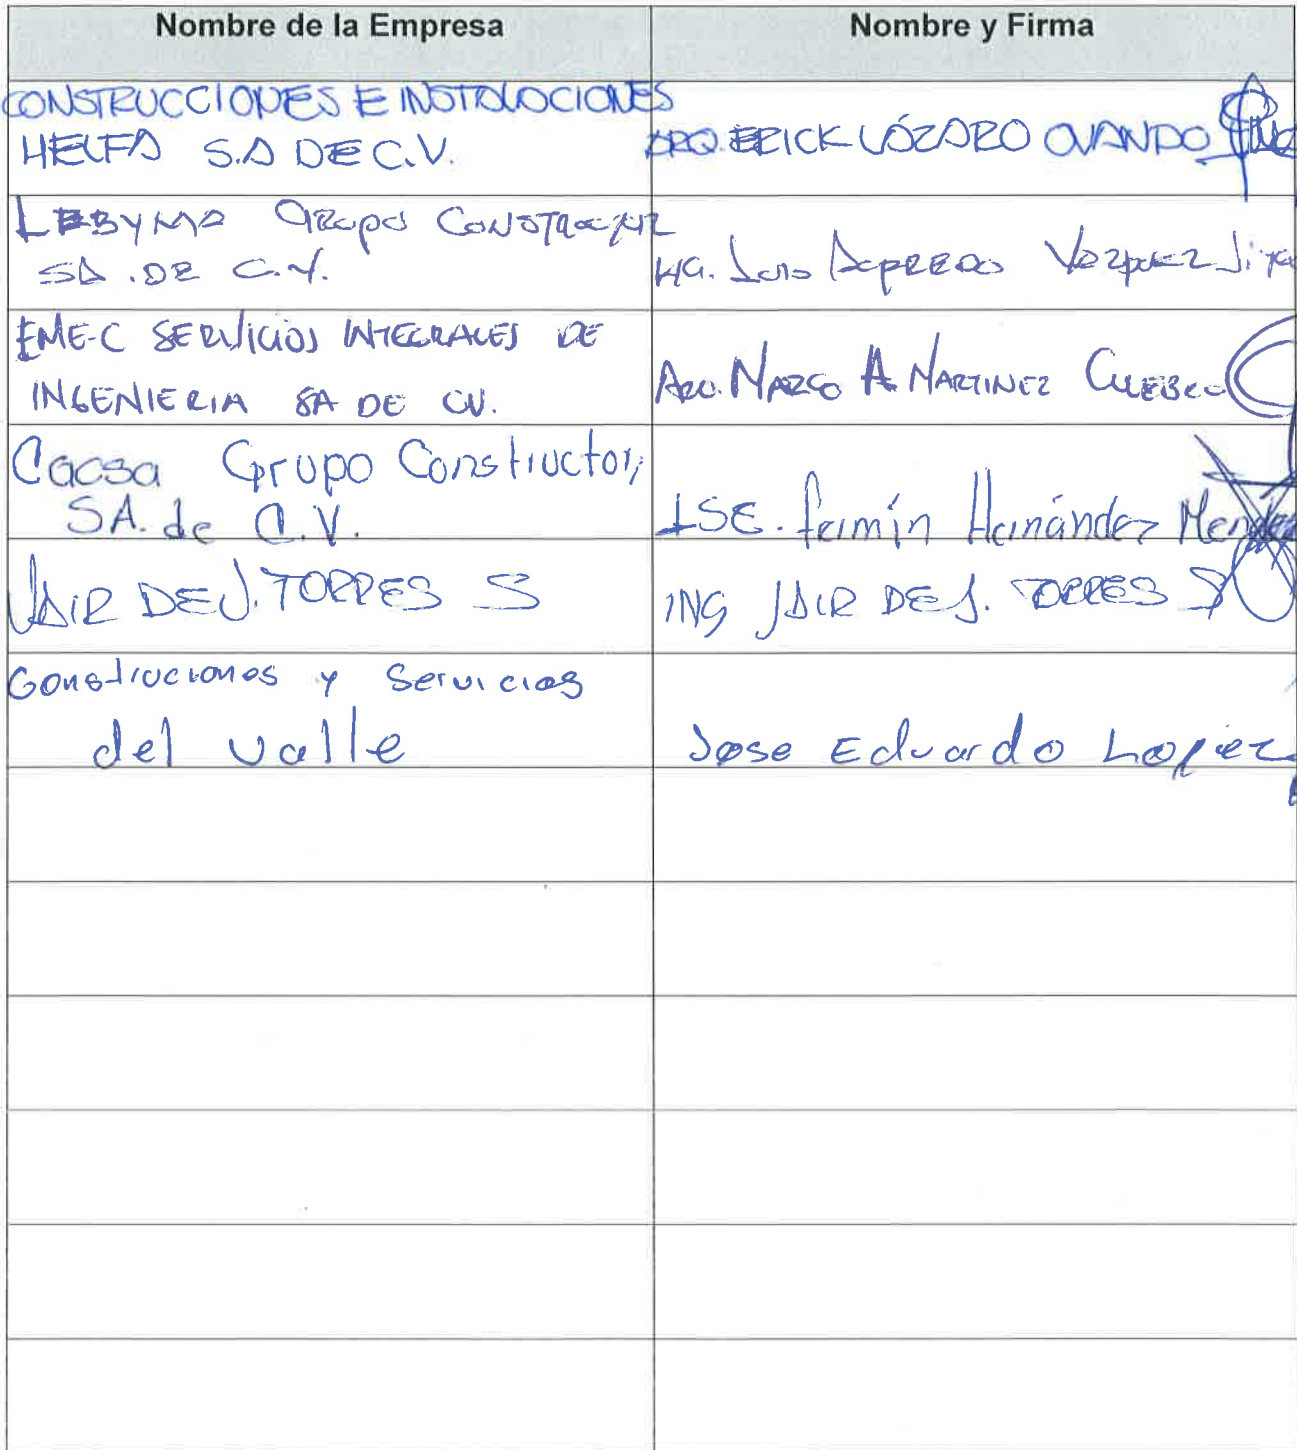 Nombre de la Empresa
Nombre y Firma
CONSTRUCCIONES E INSTALACIONES
HELFA S.A DE C.V.
ARQ. ERICK LÁZARO OVANDO
LEBYMA GRUPO
SA. DE C.V.
Luis Vazquez
EME-C SERVICIOS INTEGRALES DE
INGENIERIA SA DE CV.
ARQ. MARCO A MARTINEZ
Cacsa Grupo Constructor,
SA. de C.V.
ISE. fermín Hernández Mendez
JAIR DE J. TORRES S
ING JAIR DE J. TORRES S
Construciones y Servicios
del valle
Jose Eduardo Lopez